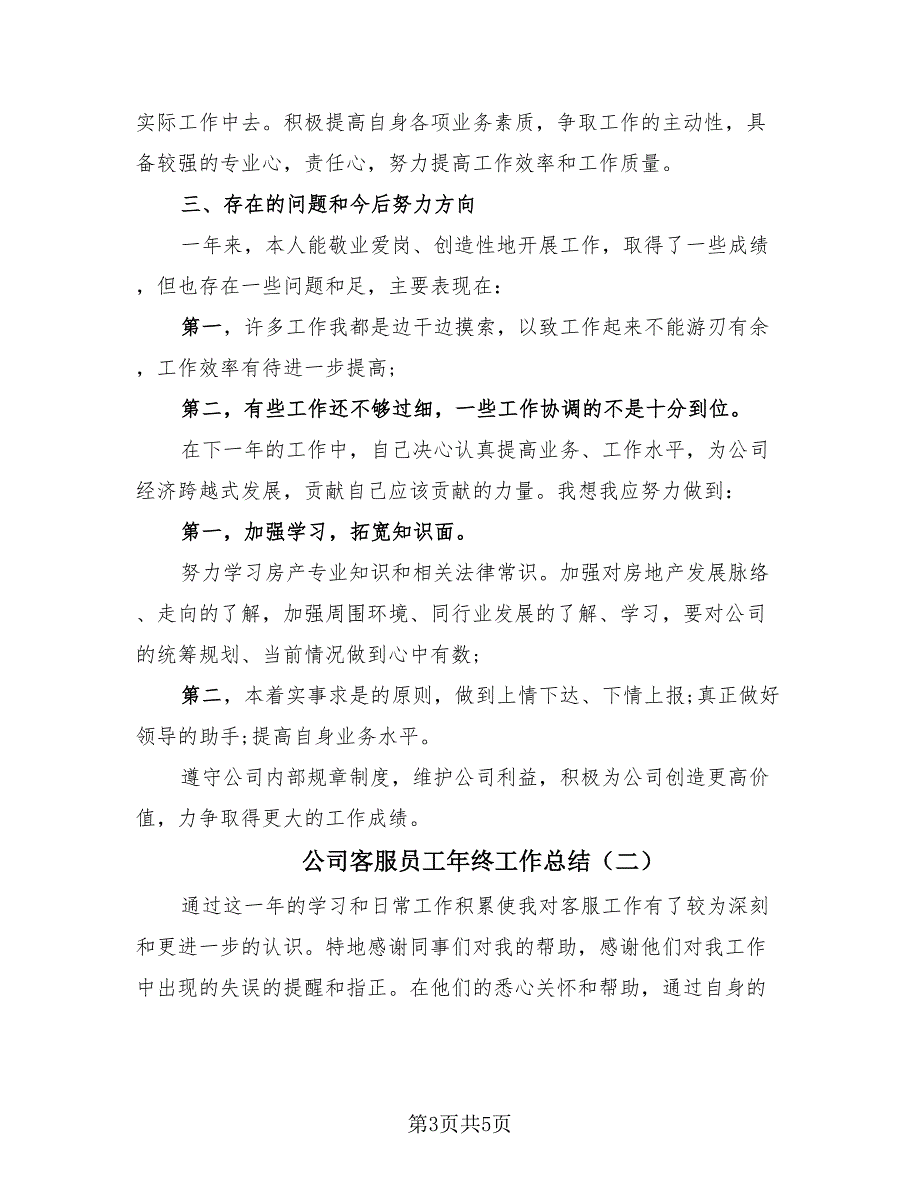 实际工作中去。积极提高自身各项业务素质，争取工作的主动性，具
备较强的专业心，责任心，努力提高工作效率和工作质量。
三、存在的问题和今后努力方向
一年来，本人能敬业爱岗、创造性地开展工作，取得了一些成绩
，但也存在一些问题和足，主要表现在：
第一，许多工作我都是边干边摸索，以致工作起来不能游刃有余
，工作效率有待进一步提高；
第二，有些工作还不够过细，一些工作协调的不是十分到位。
在下一年的工作中，自己决心认真提高业务、工作水平，为公司
经济跨越式发展，贡献自己应该贡献的力量。我想我应努力做到：
第一，加强学习，拓宽知识面。
努力学习房产专业知识和相关法律常识。加强对房地产发展脉络
、走向的了解，加强周围环境、同行业发展的了解、学习，要对公司
的统筹规划、当前情况做到心中有数；
第二，本着实事求是的原则，做到上情下达、下情上报；真正做好
领导的助手；提高自身业务水平。
遵守公司内部规章制度，维护公司利益，积极为公司创造更高价
值，力争取得更大的工作成绩。
公司客服员工年终工作总结（二）
通过这一年的学习和日常工作积累使我对客服工作有了较为深刻
和更进一步的认识。特地感谢同事们对我的帮助，感谢他们对我工作
中出现的失误的提醒和指正。在他们的悉心关怀和帮助，通过自身的
第3页共5页